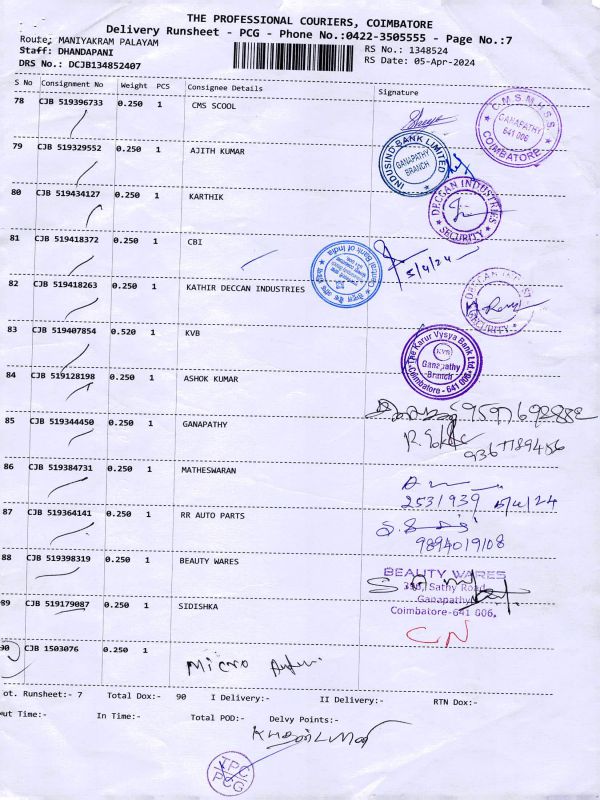 THE PROFESSIONAL COURIERS, COIMBATORE
Delivery Runsheet - PCG - Phone No.:0422-3505555 - Page No.:7
Route: MANIYAKRAM PALAYAM
RS No.: 1348524
Staff: DHANDAPANI
RS Date: 05-Apr-2024
DRS No.: DCJB134852407
S No Consignment No Weight PCS Consignee Details Signature
78 CJB 519396733 0.250 1 CMS SCOOL
C.M.S.M.H.S.S. GANAPATHY 641 006 COIMBATORE
79 CJB 519329552 0.250 1 AJITH KUMAR
INDUSIND BANK LIMITED GANAPATHY BRANCH
80 CJB 519434127 0.250 1 KARTHIK
DECCAN INDUSTRIES SECURITY
81 CJB 519418372 0.250 1 CBI
Central Bank of India
5/4/24
82 CJB 519418263 0.250 1 KATHIR DECCAN INDUSTRIES
DECCAN INDUST SECURITY
83 CJB 519407854 0.520 1 KVB
The Karur Vysya Bank Ltd. KVB Ganapathy Branch Coimbatore - 641 006
84 CJB 519128198 0.250 1 ASHOK KUMAR
85 CJB 519344450 0.250 1 GANAPATHY
86 CJB 519384731 0.250 1 MATHESWARAN
2531939
87 CJB 519364141 0.250 1 RR AUTO PARTS
9894019108
88 CJB 519398319 0.250 1 BEAUTY WARES
BEAUTY WARES
Sathy Road,
Ganapathy
Coimbatore-641 006.
89 CJB 519179087 0.250 1 SIDISHKA
CN
90 CJB 1503076 0.250 1 Micro
ot. Runsheet:- 7 Total Dox:- 90 I Delivery:- II Delivery:- RTN Dox:-
ut Time:- In Time:- Total POD:- Delvy Points:-
TPC
PCG